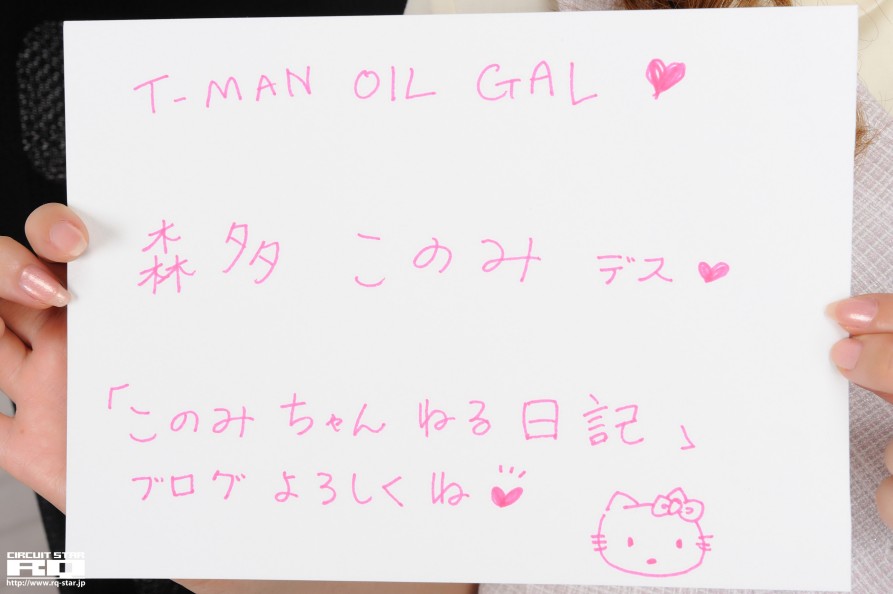 T-MAN OIL GAL ♥
森多 このみ デス ♥
「このみちゃんねる日記」
ブログよろしくね ♥
CIRCUIT STAR
RQ
http://www.rq-star.jp